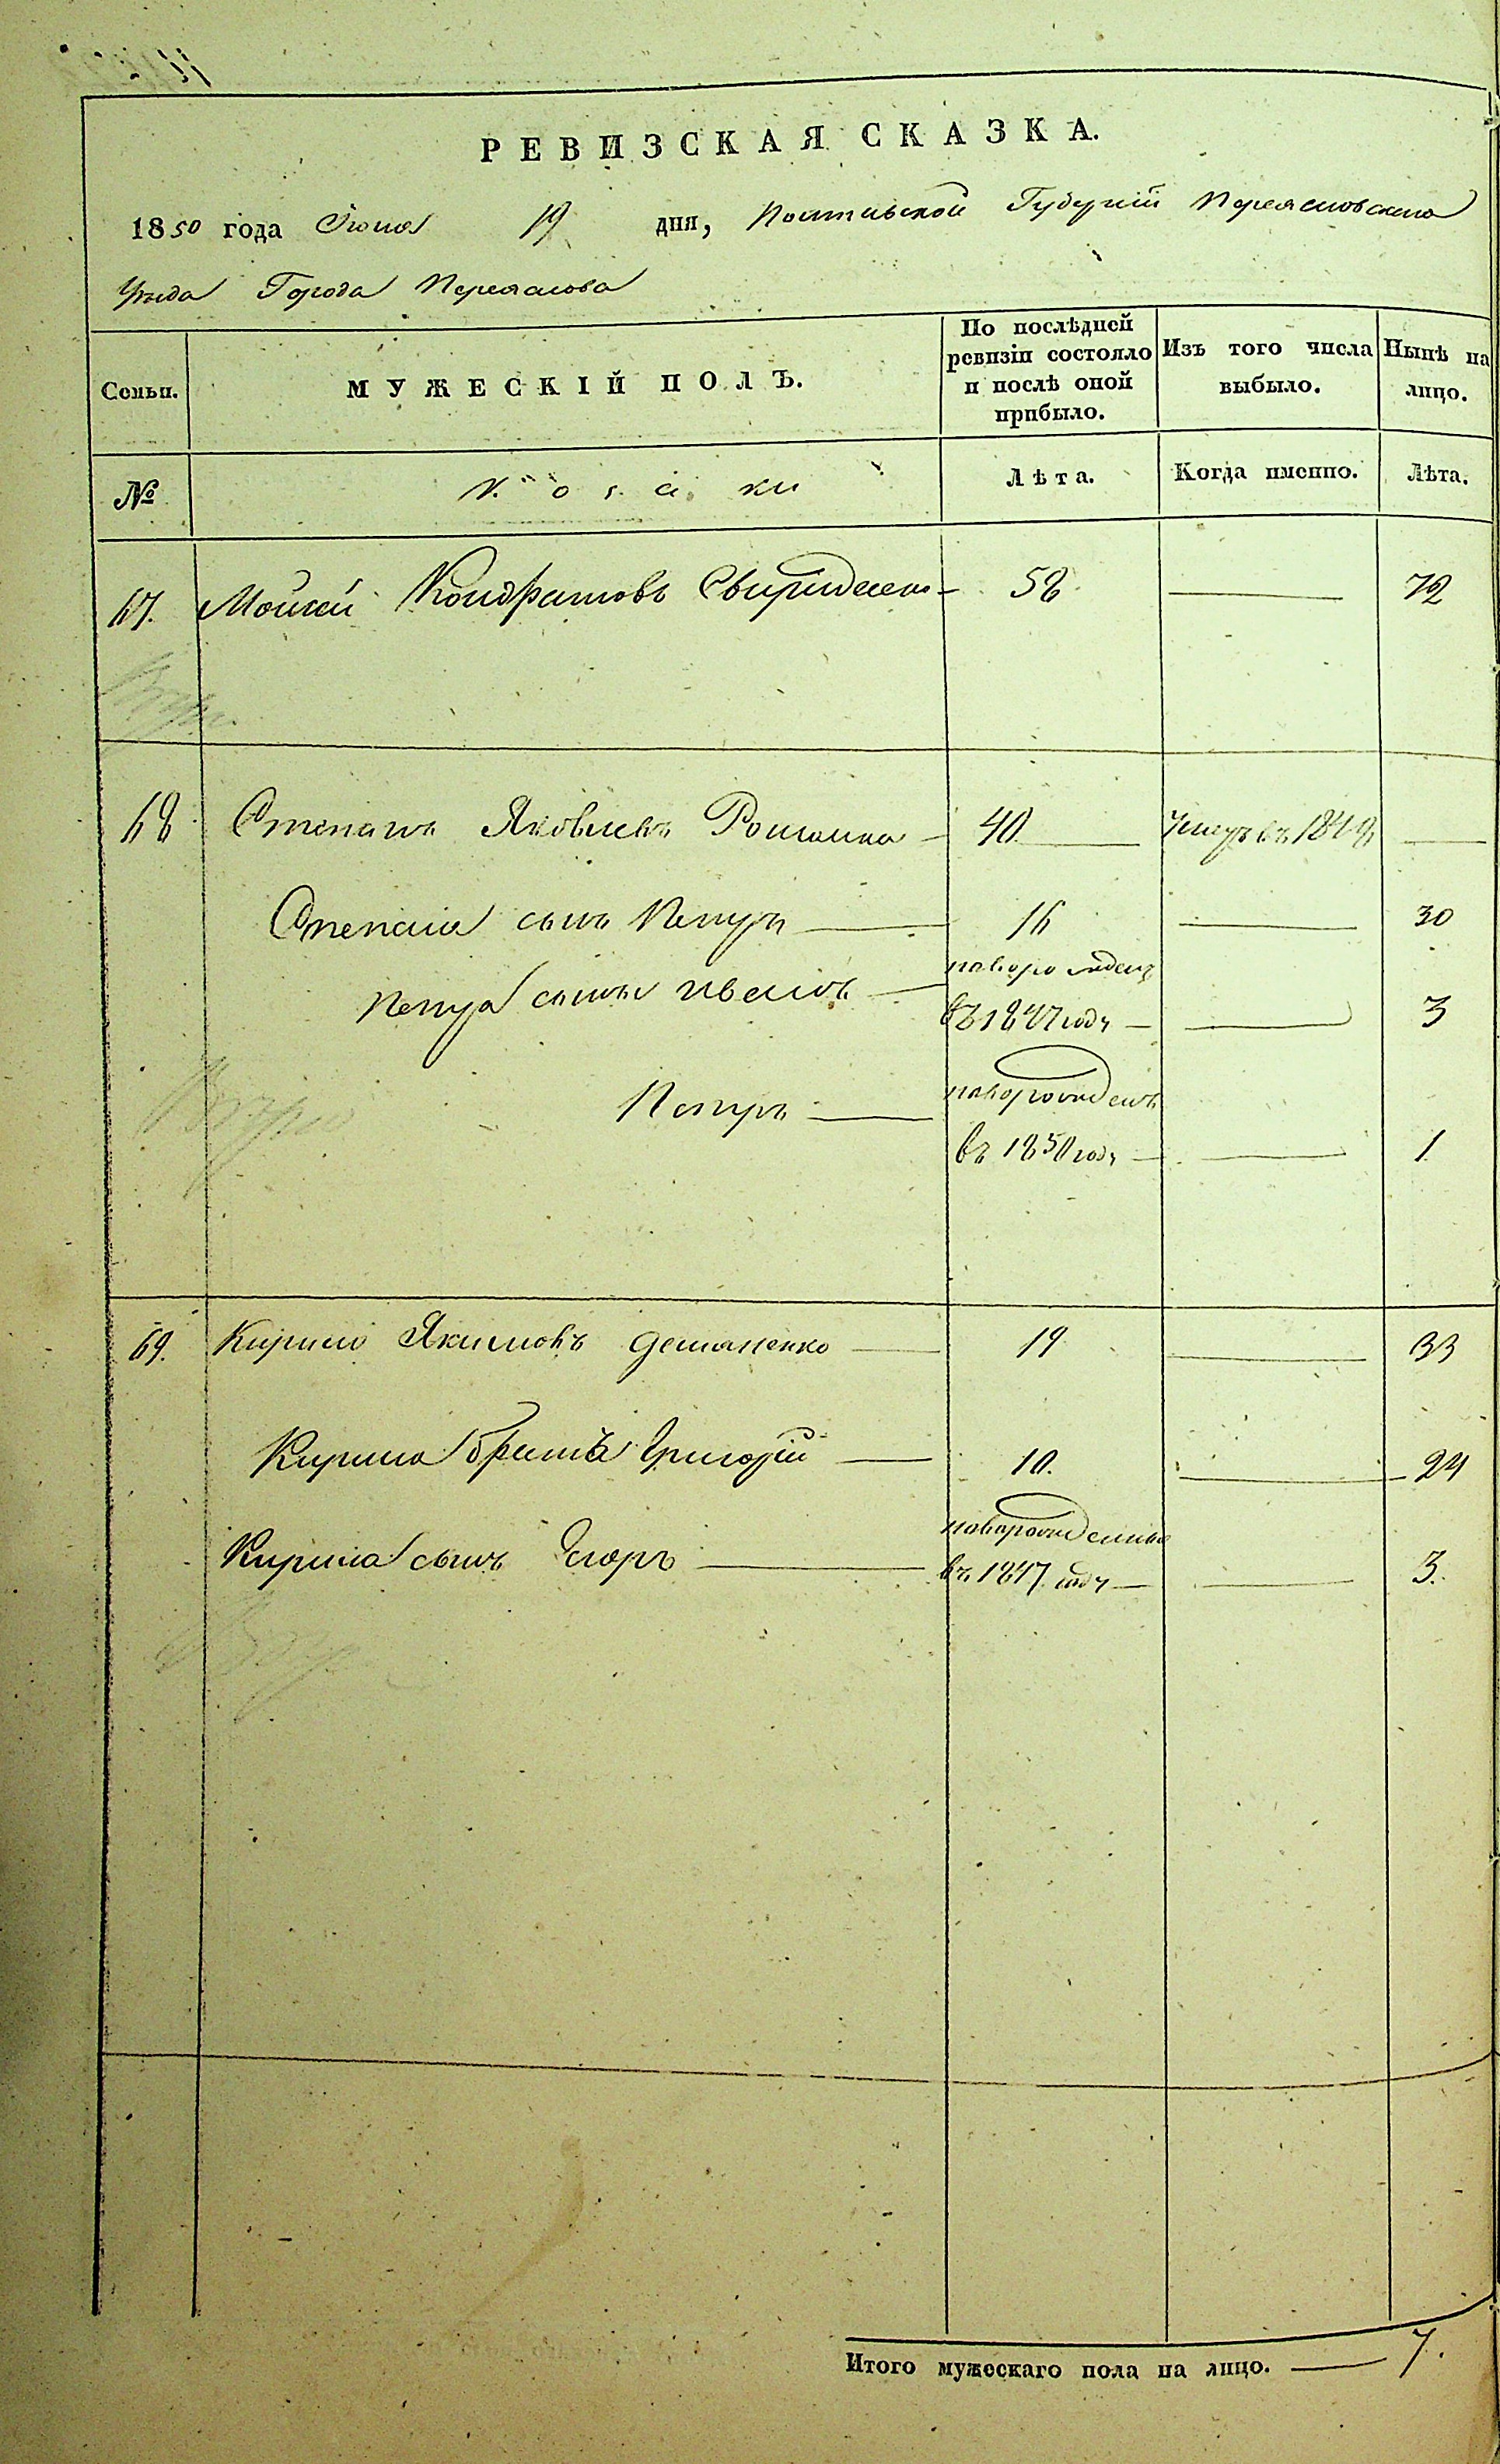 РЕВИЗСКАЯ СКАЗКА.
1850 года Июня 19 дня, Полтавской Губерніи Переяславскаго
Уѣзда Города Переяслова
Семьи. МУЖЕСКІЙ ПОЛЪ. По послѣдней ревизіи состояло и послѣ оной прибыло. Изъ того числа выбыло. Нынѣ на лицо.
№ Козаки Лѣта. Когда именно. Лѣта.
67. Мойсей Кондратовъ Свириденко 58 72
68 Степанъ Яковлевъ 40 Умеръ въ 1848
Степана сынъ Петръ 16 30
Петра сыны Иванъ новорожденъ
въ 1847 году 3
Петръ новорожденъ
въ 1850 году 1
69. Кирило Якимовъ Демяненко 19 33
Кирила братъ Григорій 10. 24
Кирила сынъ Егоръ новорожденный
въ 1847 году 3.
Итого мужескаго пола на лицо. 7.